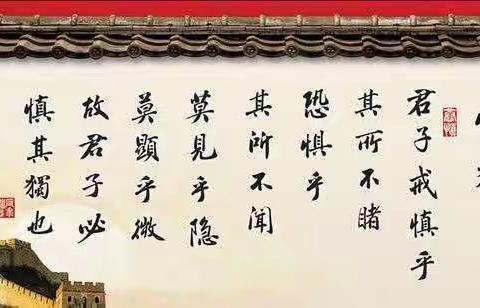 君子戒慎乎
其所不睹
恐惧乎
其所不闻
莫見乎隐
莫顯乎微
故君子必
慎其獨也